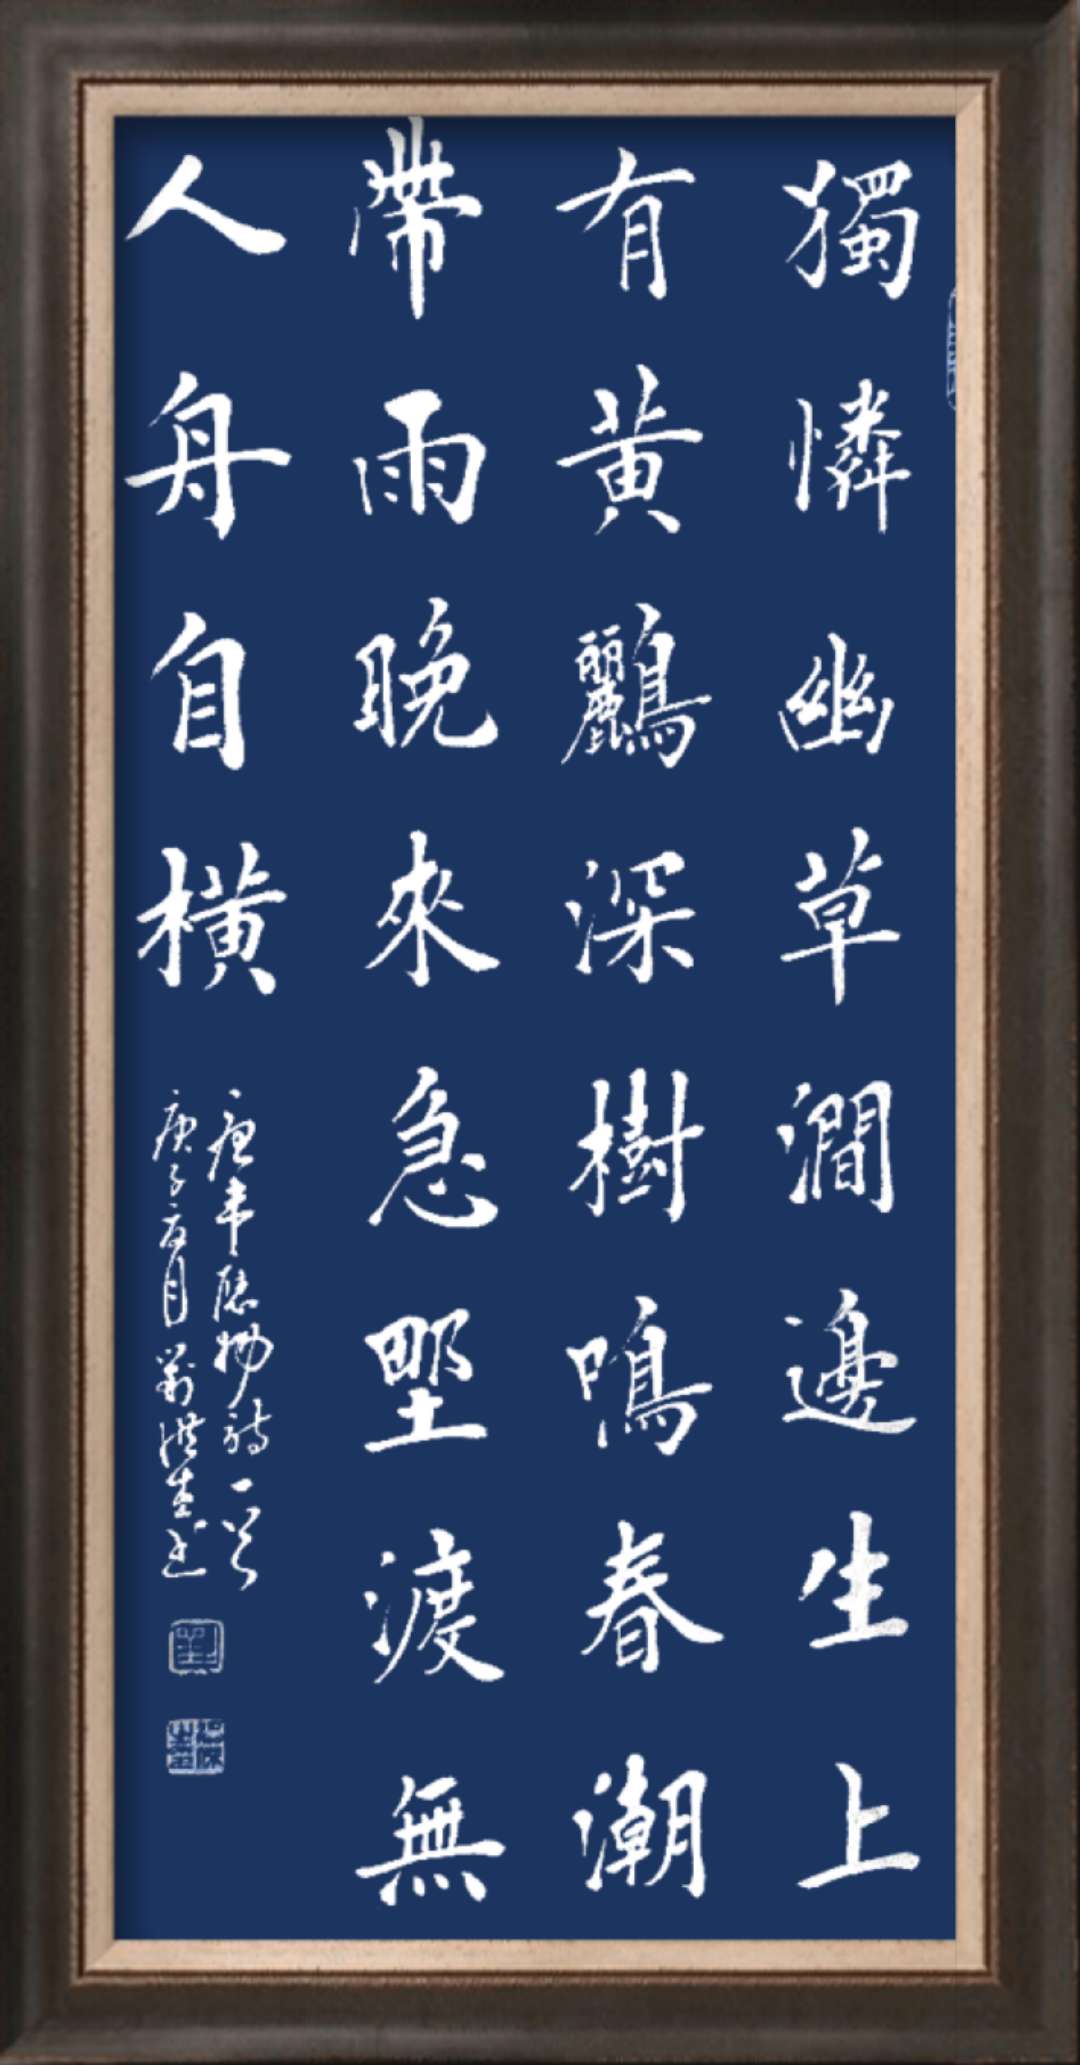 獨憐幽草澗邊生上
有黃鸝深樹鳴春潮
帶雨晚來急野渡無
人舟自橫
唐韋應物詩一首
庚子夏月劉洪生書